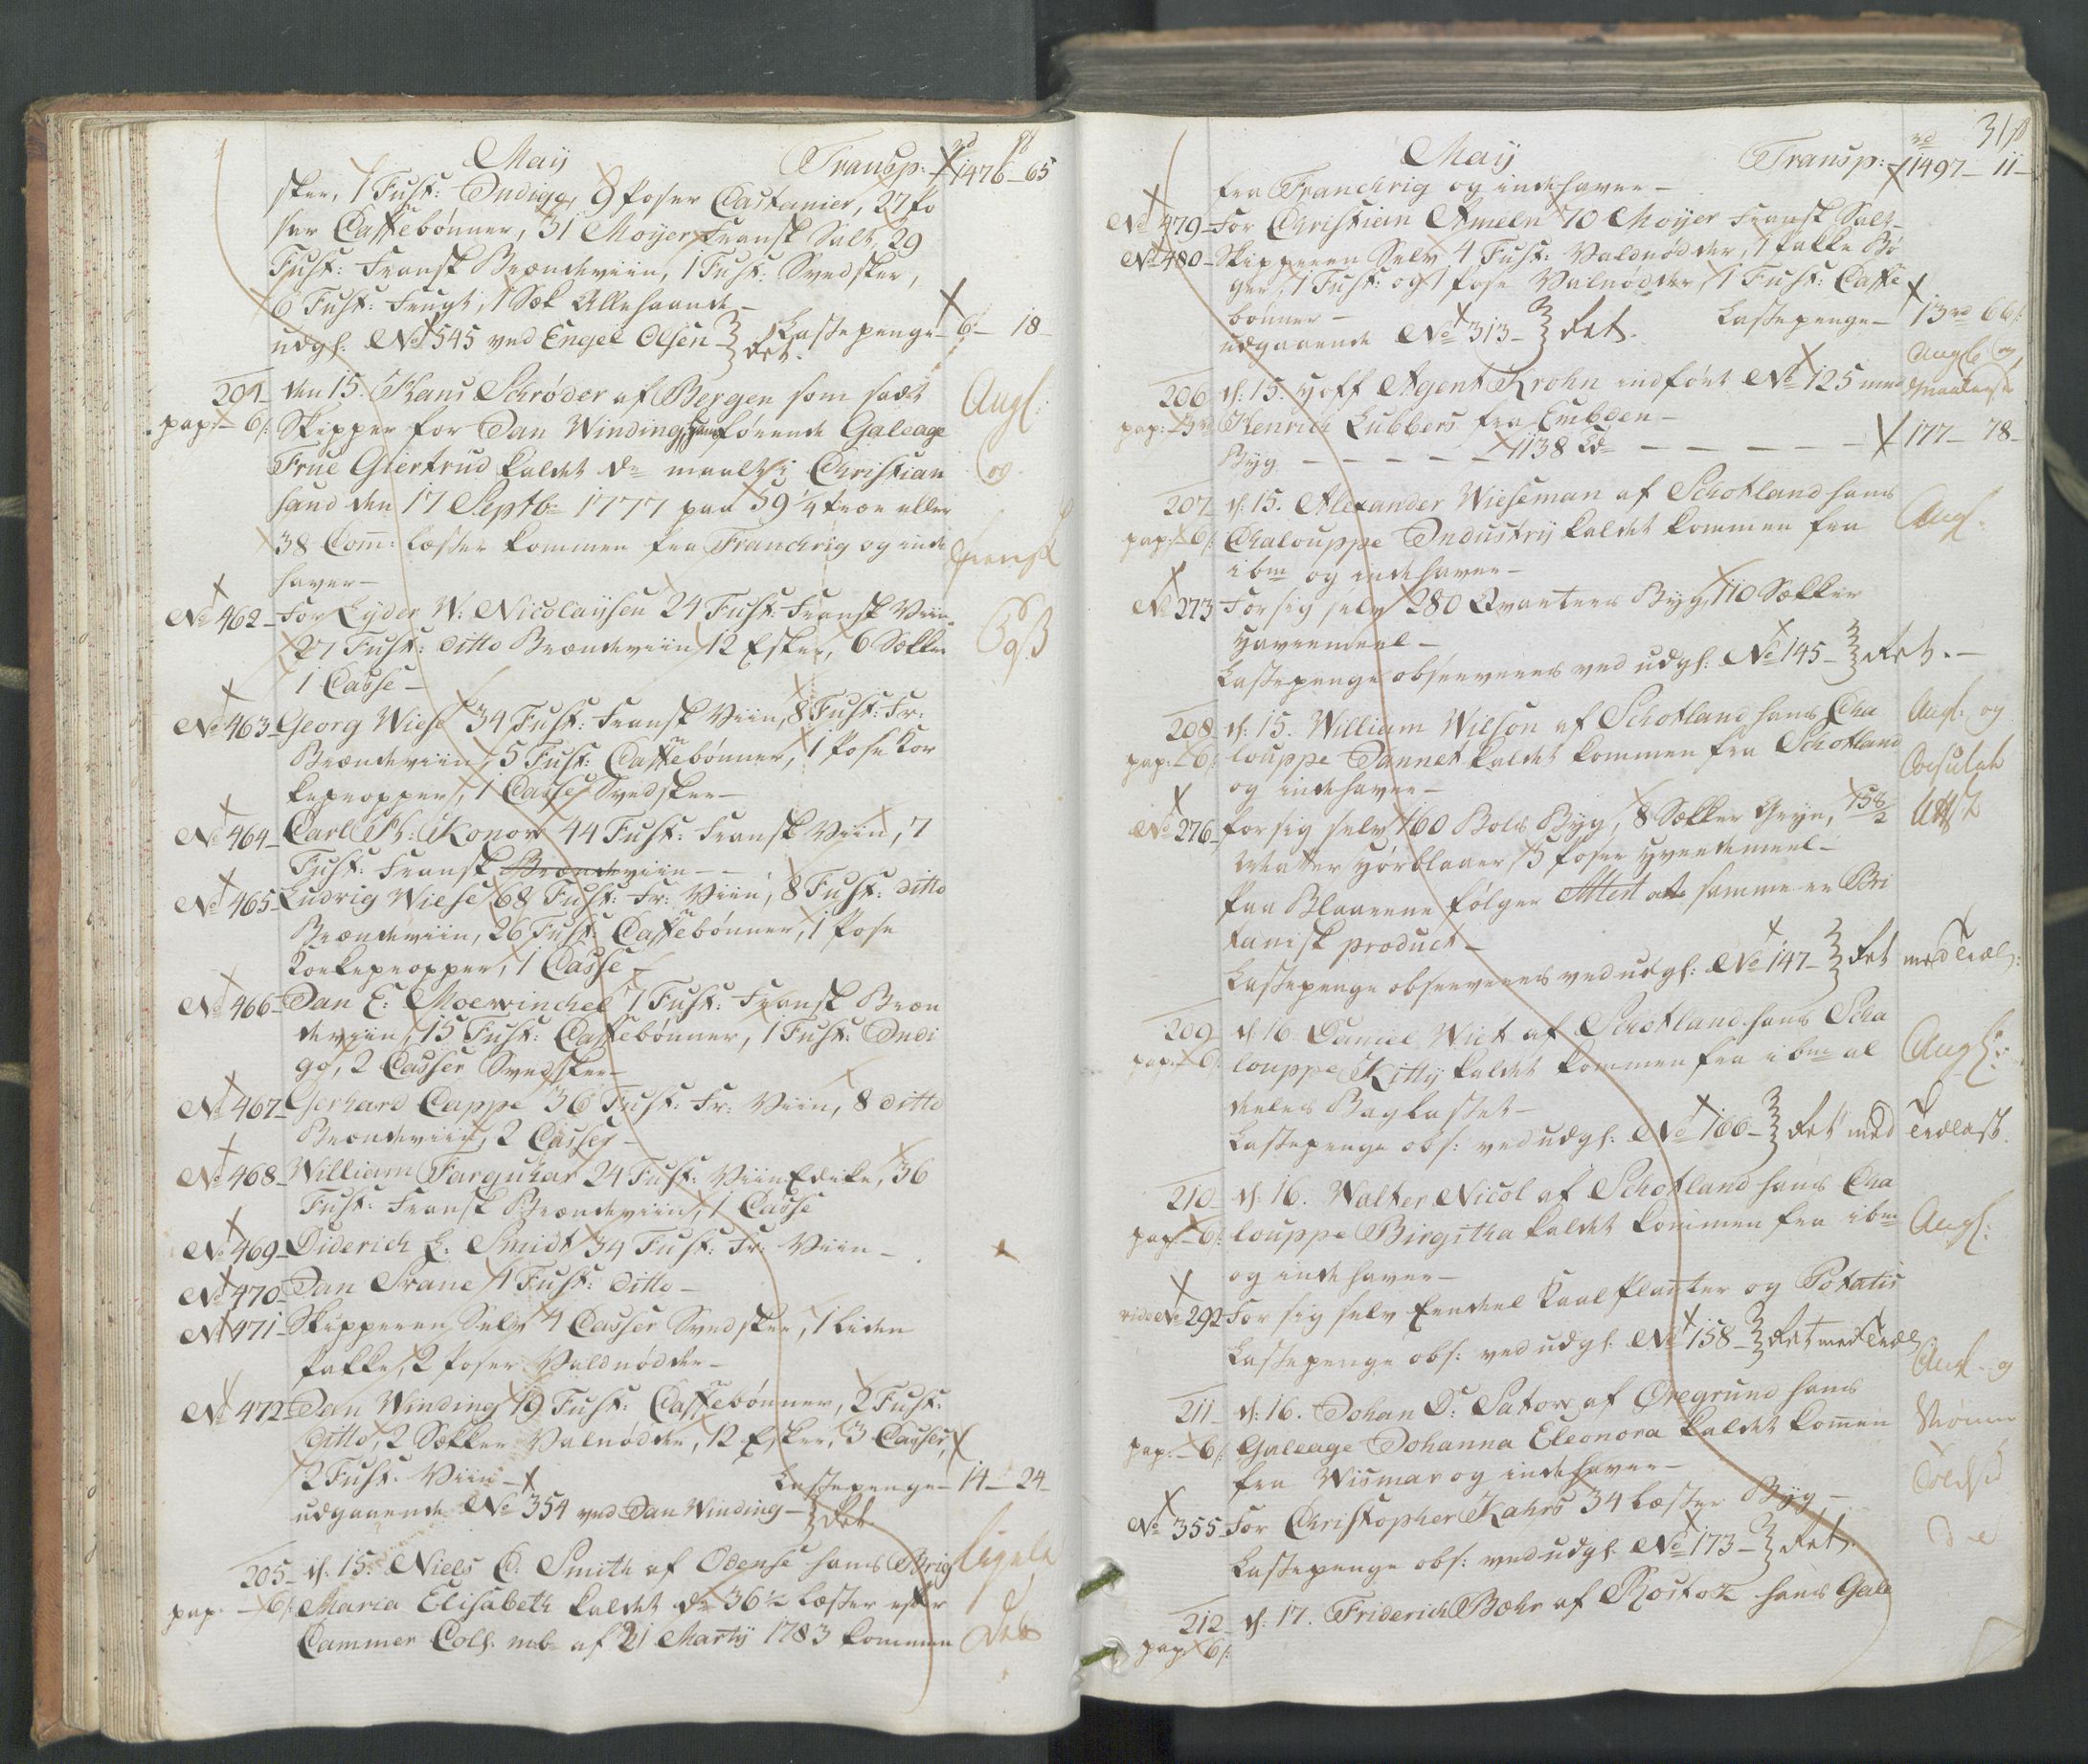 May Transp: 1476 - 65
sker, 1 Fust: Indigo, 9 Poser Castanier, 27 Po
ser Caffebønner, 31 Moyer Fransk Salt, 29
Fust: Fransk Brændeviin, 1 Fust: Svedsker,
6 Fust: Frugt, 1 Sæk Allehaande -
Lastepenge - 6 - 18 -
udgh: No 545 ved Engel Olsen - dct.
204 - den 15. Hans Schrøder af Bergen som sadt
pap: - 6 s: Skipper for Dan Winding, førende Galeage
Frue Giertrud kaldet dr. maalt i Christian
sand den 17 Septb: 1777 paa 59 1/4 træe eller
38 Com: læster kommen fra Franchrig og inde
haver -
No 462 - For Lyder W: Nicolaysen 24 Fust: Fransk Viin
27 Fust: ditto Brændeviin, 12 Esker, 6 Sækker
1 Casse -
No 463 - Georg Wiese 34 Fust: Fransk Viin, 8 Fust: Fr:
Brændeviin, 5 Fust: Caffebønner, 1 Pose Kor
kepropper, 1 Casse Svedsker -
No 464 - Carl Ph: Konow 44 Fust: Fransk Viin, 7
Fust: Fransk Brændeviin - -
No 465 - Ludvig Wiese 68 Fust: Fr: Viin, 8 Fust: ditto
Brændeviin, 26 Fust: Caffebønner, 1 Pose
Korkepropper, 1 Casse -
No 466 - Dan E: Moewinckel 1 Fust: Fransk Bræn
deviin, 15 Fust: Caffebønner, 1 Fust: Indi
go, 2 Casser Svedsker -
No 467 - Gerhard Cappe 36 Fust: Fr: Viin, 8 ditto
Brændeviin, 2 Casser -
No 468 - William Farquhar 24 Fust: Viin Edike, 36
Fust: Fransk Brændeviin, 1 Casse
No 469 - Diderich L: Smidt 34 Fust: Fr: Viin -
No 470 - Dan Krane 4 Fust: ditto -
No 471 - Skipperen Selv 4 Casser Svedsker, 1 liden
Pakke, 2 Poser Valdnødder -
No 472 - Dan Winding 19 Fust: Caffebønner, 2 Fust:
ditto, 2 Sækker Valnødder, 12 Esker, 3 Casser,
2 Fust: Viin - Lastepenge - 14 - 24 -
udgaaende No 354 ved Dan Winding - dct.
205 - d: 15. Niels C. Smith af Odense hans Brig
pap: - 6 s: Maria Elisabeth kaldet dr. 36 1/2 læster efter
Cammer Coll: mb: af 21 Martij 1783 kommen
317
May Transp: 1497 - 11 -
fra Franchrig og indehaver -
No 479 - For Christian Ameln 70 Moyer Fransk Salt -
No 480 - Skipperen Selv 4 Fust: Valdnødder, 1 Pakke Bø
ger, 1 Fust: og 1 Pose Valnødder, 1 Fust: Caffe
bønner - Lastepenge - 13 rd 66 s:
udgaaende No 313 - dct.
206 d: 15. Hoff Agent Krohn indført No 125 med
pap: - 3 rd Henrich Lubbers fra Embden -
Byg - - - - - 1138 Td - - - - - 177 - 78 -
207 - d: 15. Alexander Wieseman af Schotland hans
pap: - 6 s: Chalouppe Industrij kaldet kommen fra
ibm og indehaver -
No 273 For sig selv 280 Qvarters Byg, 110 Sækker
Havremeel -
Lastepenge observeres ved udgh: No 145 - dct. -
208 - d: 15. William Wilson af Schotland hans Cha
pap: - 6 s: louppe Jannet kaldet kommen fra Schotland
og indehaver -
No 276 - for sig selv 160 Bols Byg, 8 Sækker Gryn, 158/2
Matter Hørblaaer, 5 Poser Hvedemeel -
Paa Blaarene følger Attest at samme er Bri
tanisk product -
Lastepenge observeres ved udgh: No 147 - dct
209 d: 16. Daniel Wick af Schotland hans Scha
pap: - 6 s: louppe Kitty kaldet kommen fra ibm al
deeles Baglastet -
Lastepenge obs: ved udgh: No 166 - dct med
210 - d: 16. Walter Nicol af Schotland hans Cha
pap: - 6 s: louppe Birgitha kaldet kommen fra ibm
og indehaver -
vide No 292 For sig selv Eendeel Kaalplanter og Potatis
Lastepenge obs: ved udgh: No 158 - dct med
211 - d: 16. Johan D: Satow af Øregrund hans
pap: - 6 s: Galeage Johanna Eleonora kaldet komen
fra Wismar og indehaver -
No 355 - For Christopher Kahrs 34 læster Byg -
Lastepenge obs: ved udgh: No 173 - dct.
212 - d: 17. Friderich Bohr af Rostok hans Gale
pap: 6 s: